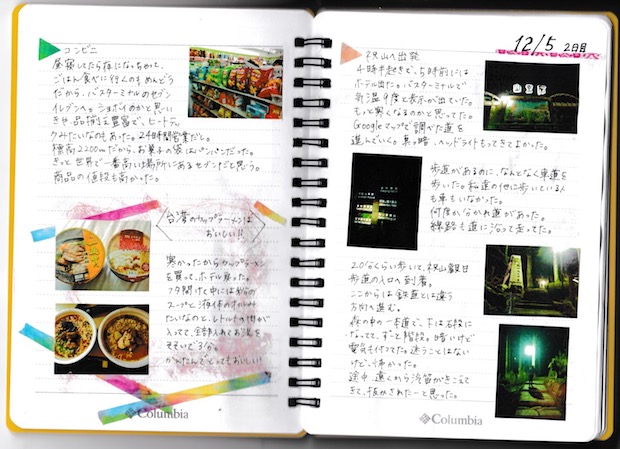 コンビニ
昼寝したら夜になっちゃて、
ごはん食べに行くのもめんどう
だから、バスターミナルのセブン
イレブンへ。ショボいのかと思い
きや、品揃は豊富で、ヒートテッ
クみたいなのもあった。24時間営業だし。
標高2200mだから、お菓子の袋はパンパンだった。
きっと世界で一番高い場所にあるセブンだと思う。
商品の値段も高かった。
台湾のカップラーメンは
おいしい!!
寒かったからカップラーメン
を買って、ホテル戻った。
フタ開けて中には粉の
スープと液体のオイルみ
たいなのと、レトルトの肉が
入ってて、全部入れてお湯を
そそいで3分。
かんたんでとってもおいしい!
Columbia
12/5 2日目
祝山へ出発
4時半起きで、5時前には
ホテル出た。バスターミナルで
気温9度と表示が出ていた。
もっと寒くなるのかと思ってた。
Googleマップで調べた道を
進んでいく。真っ暗。ヘッドライトもってきてよかった。
歩道があるのに、なんとなく車道を
歩いた。私達の他に歩いている人
も車もいなかった。
何度か分かれ道があった。
線路も道に沿って走ってた。
20分くらい歩いて、祝山観日
歩道の入口へ到着。
ここからは鉄道とは違う
方向へ進む。
森の中の一本道で、下は石段に
なってて、ずっと階段。暗いけど
電気も付いてた。迷うことはない
けど、怖かった。
途中、遠くから汽笛がきこえて
きて、抜かされたーと思った。
Columbia